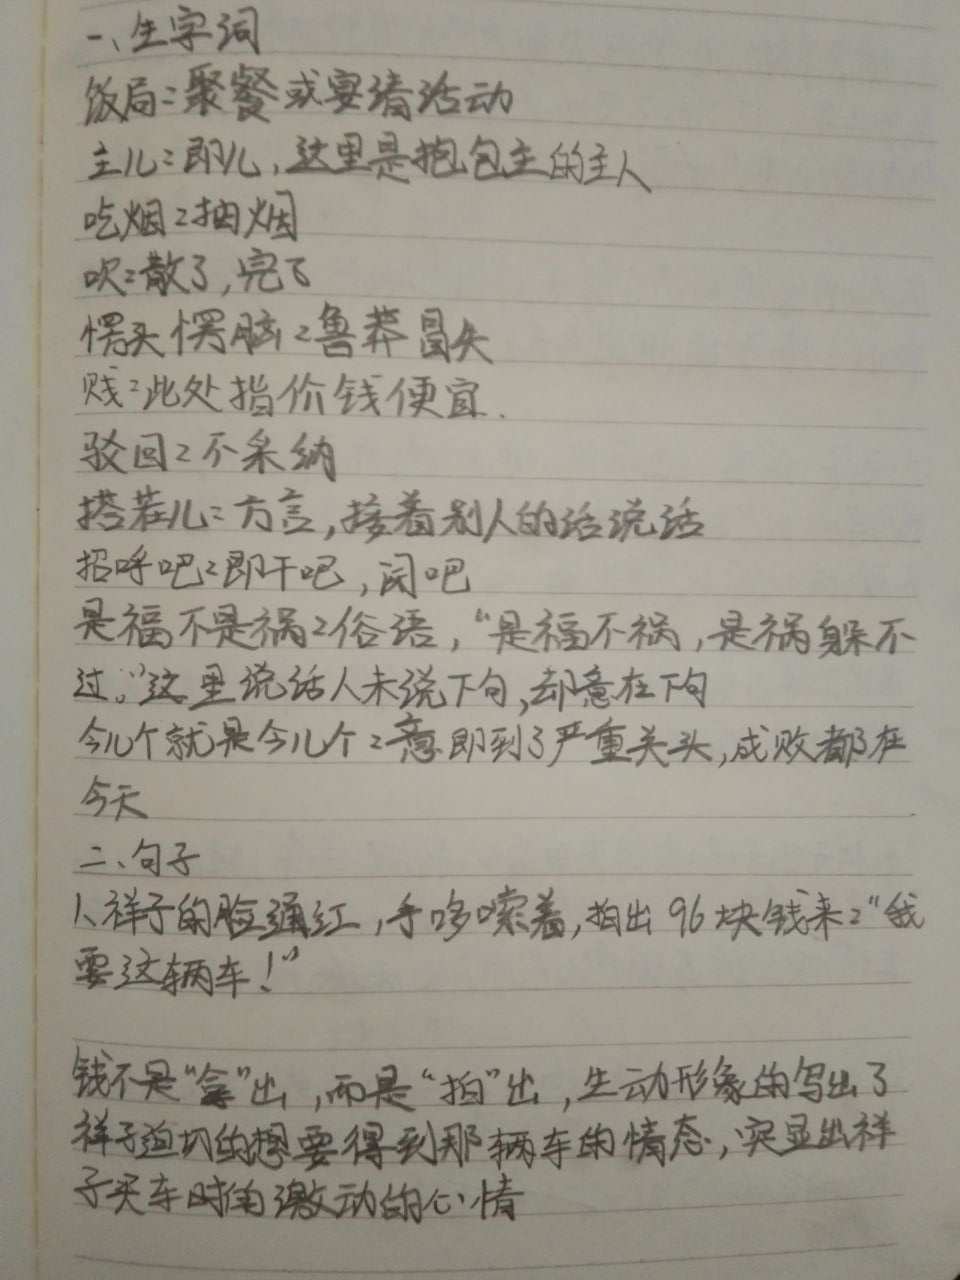 一、生字词
饭局：聚餐或宴请活动
主儿：即儿，这里是抱包主的主人
吃烟：抽烟
吹：散了，完了
愣头愣脑：鲁莽冒失
贱：此处指价钱便宜.
驳回：不采纳
搭茬儿：方言，接着别人的话说话
招呼吧：即干吧，闯吧
是福不是祸：俗语，“是福不祸，是祸躲不
过。”这里说话人未说下句，却意在下句
今儿个就是今儿个：意即到了严重关头，成败都在
今天
二、句子
1、祥子的脸通红，手哆嗦着，拍出96块钱来：“我
要这辆车！”
钱不是“拿”出，而是“拍”出，生动形象的写出了
祥子迫切的想要得到那辆车的情态，突显出祥
子买车时的激动的心情